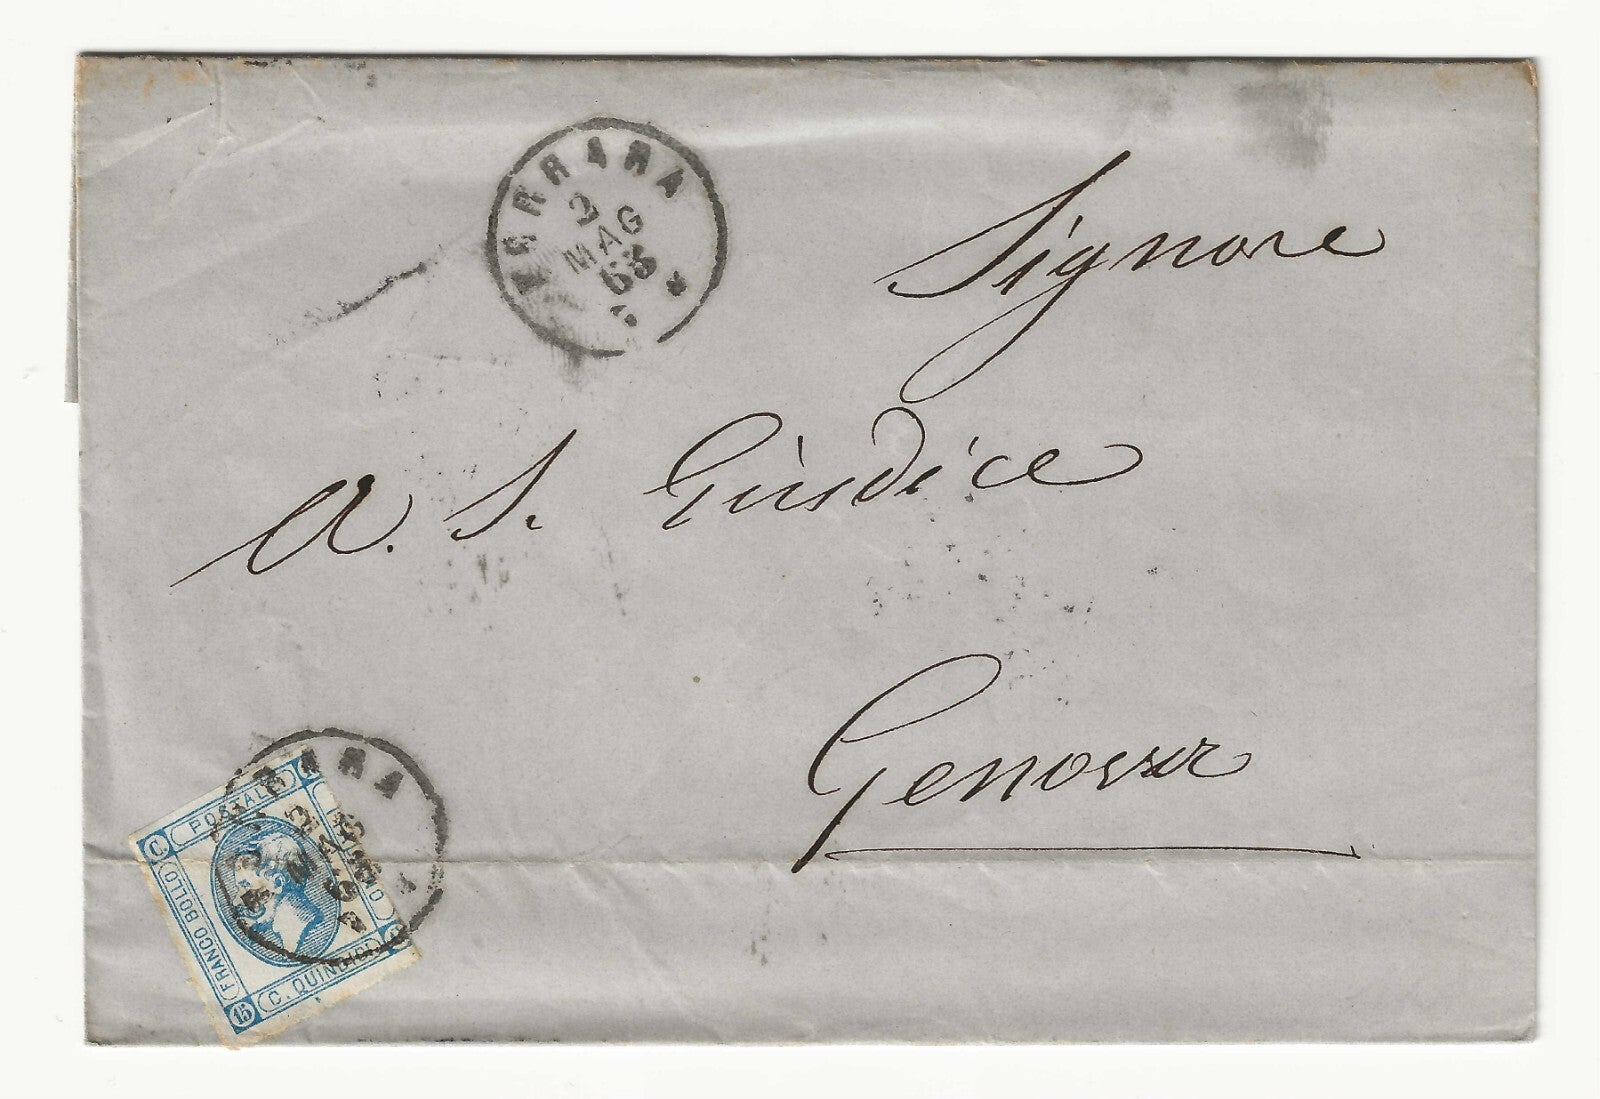 FERRARA
2
MAG
63
Signore
A. S. Giudice
Genova
FERRARA
2
MAG
63
C
POSTALE
FRANCO BOLLO
C. QUINDICI
15